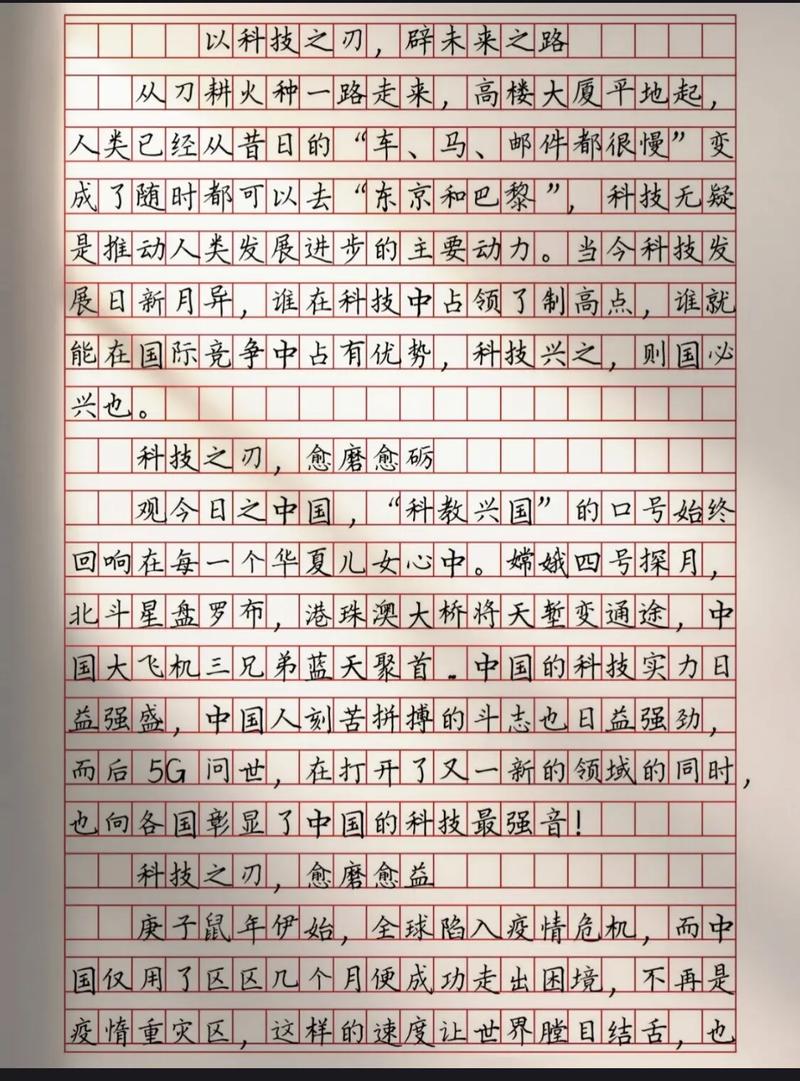 以科技之刃，辟未来之路
从刀耕火种一路走来，高楼大厦平地起，
人类已经从昔日的“车、马、邮件都很慢”变
成了随时都可以去“东京和巴黎”，科技无疑
是推动人类发展进步的主要动力。当今科技发
展日新月异，谁在科技中占领了制高点，谁就
能在国际竞争中占有优势，科技兴之，则国必
兴也。
科技之刃，愈磨愈砺
观今日之中国，“科教兴国”的口号始终
回响在每一个华夏儿女心中。嫦娥四号探月，
北斗星盘罗布，港珠澳大桥将天堑变通途，中
国大飞机三兄弟蓝天聚首.中国的科技实力日
益强盛，中国人刻苦拼搏的斗志也日益强劲，
而后5G问世，在打开了又一新的领域的同时，
也向各国彰显了中国的科技最强音！
科技之刃，愈磨愈益
庚子鼠年伊始，全球陷入疫情危机，而中
国仅用了区区几个月便成功走出困境，不再是
疫惰重灾区，这样的速度让世界瞠目结舌，也